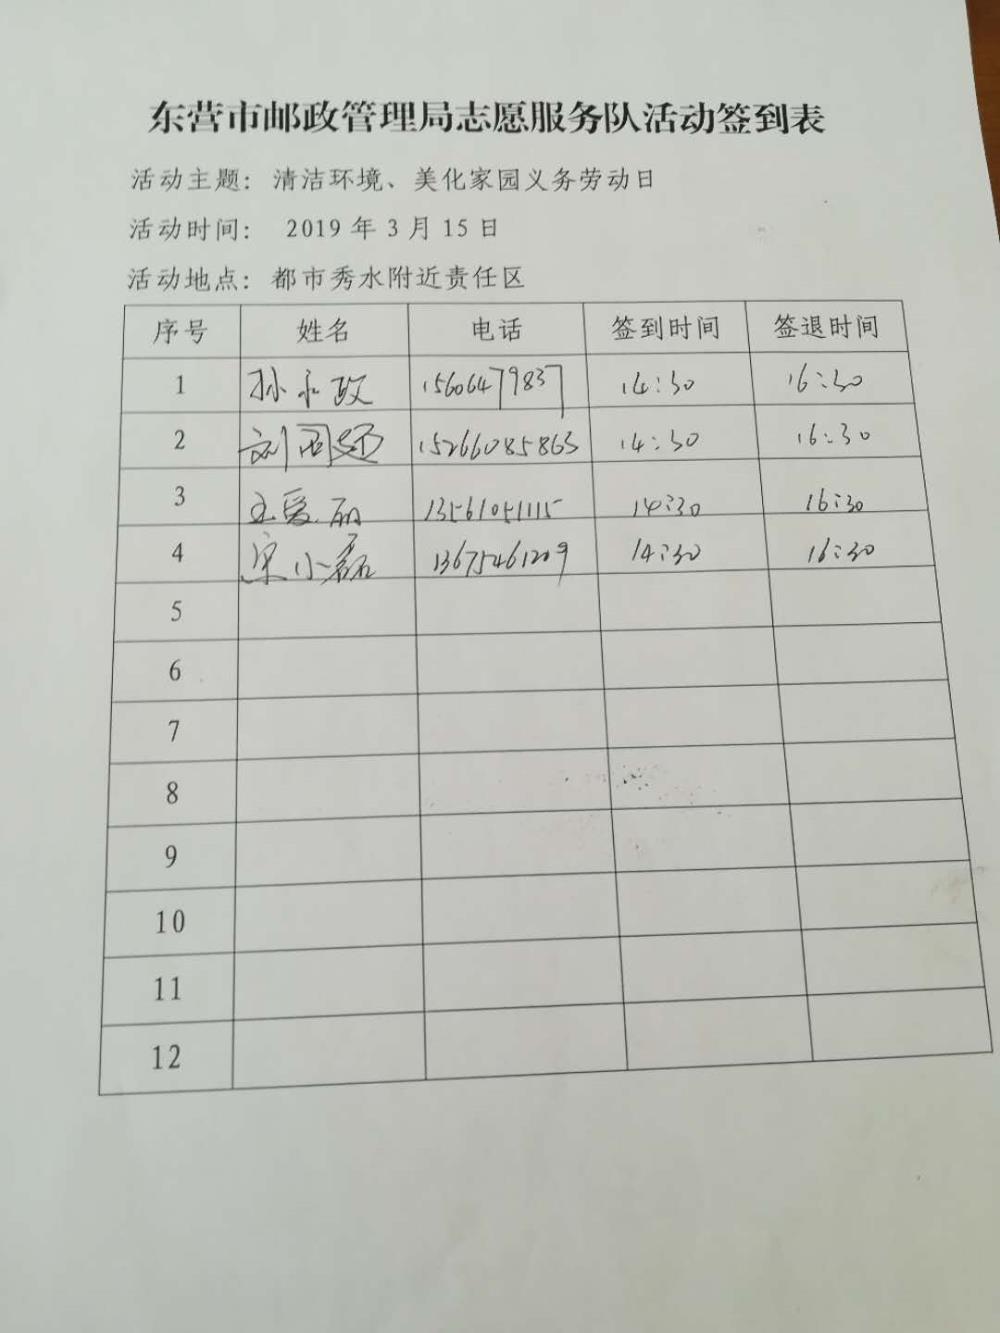 东营市邮政管理局志愿服务队活动签到表
活动主题: 清洁环境、美化家园义务劳动日
活动时间: 2019 年 3 月 15 日
活动地点: 都市秀水附近责任区
序号 姓名 电话 签到时间 签退时间
1 孙永政 15606479837 14:30 16:30
2 刘 15266085863 14:30 16:30
3 王爱丽 13561051115 14:30 16:30
4 宋小磊 13675461209 14:30 16:30
5
6
7
8
9
10
11
12